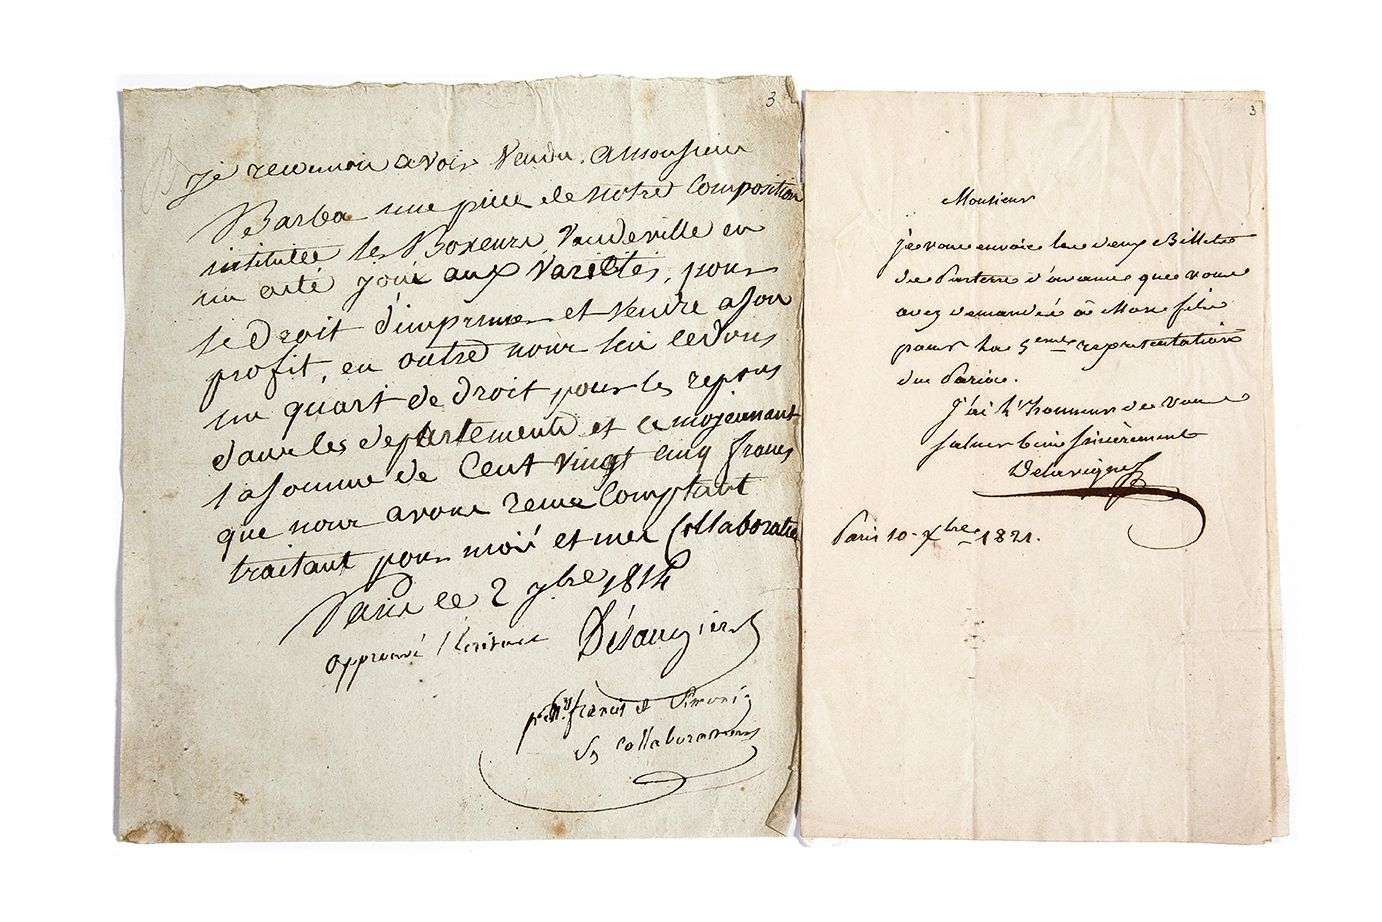 3
je reconnois avoir vendu a Monsieur
Barba une piece de notre composition
intitulée les Boxeurs vaudeville en
un acte joué aux varietés, pour
le droit d'imprimer et vendre a son
profit, en outre nous lui cedons
un quart de droit pour les
dans les departements et ce moyennant
la somme de Cent vingt cinq francs
que nous avons Comptant
traitant pour moi et mes Collaborate
Paris le 2 9bre 1814
approuvé l'écriture Désaugiers
francis et Simonin
ses collaborateurs
3
Monsieur
je vous envoie les deux Billets
de Parterre d'avance que vous
avez demandés à Mon fils
pour la 5eme représentation
du Paria.
J'ai l'honneur de vous
saluer bien sincèrement
Delavigne
Paris 10. Xbre 1821.